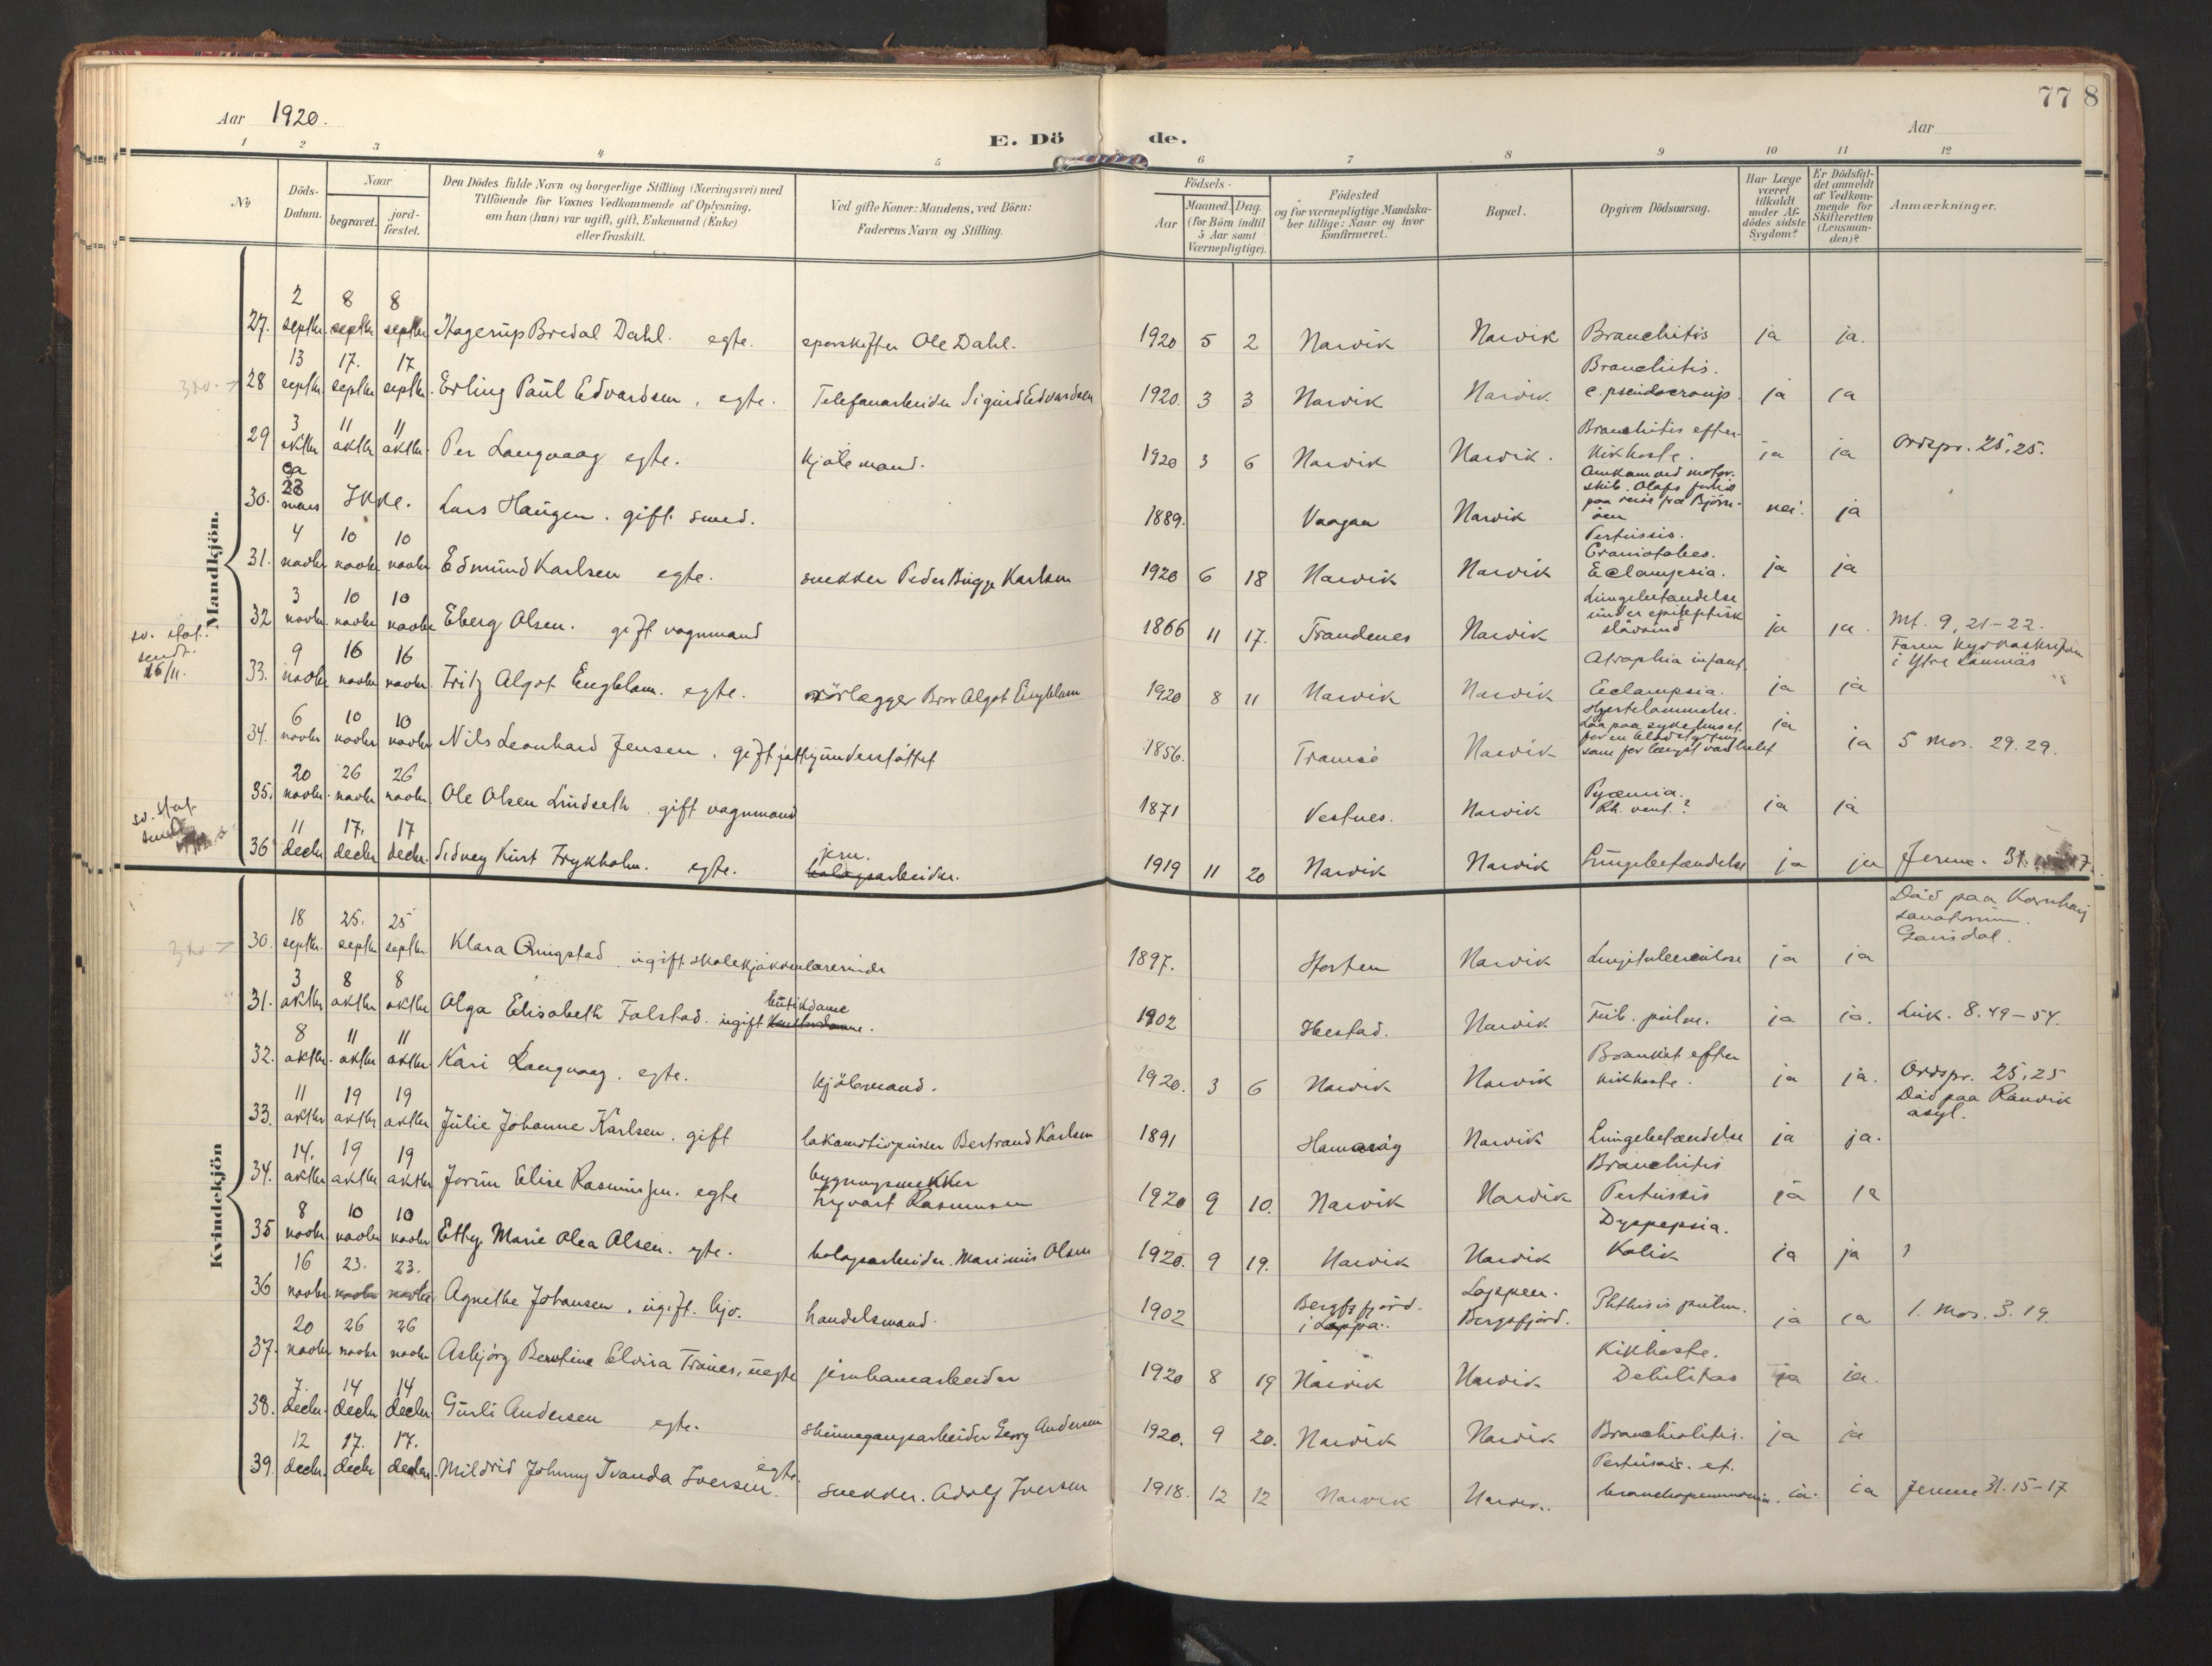 Aar 1920.
E. Dö de.
Aar
77 8
1 2 3 4 5 6 7 8 9 10 11 12
No
Döds-Datum.
Naar
begravet.
jord-fæstet.
Den Dödes fulde Navn og borgerlige Stilling (Næringsvei) med
Tilföiende for Voxnes Vedkommende af Oplysning,
om han (hun) var ugift, gift, Enkemand (Enke)
eller fraskilt.
Ved gifte Koner: Mandens, ved Börn:
Faderens Navn og Stilling.
Födsels-
Aar
Maaned. Dag.
(for Börn indtil
5 Aar samt
Værnepligtige).
Födested
og for værnepligtige Mandska-
ber tillige: Naar og hvor
Konfirmeret.
Bopæl.
Opgiven Dödsaarsag.
Har Læge
været
tilkaldt
under Af-
dödes sidste
Sygdom?
Er Dödsfal-
det anmeldt
af Vedkom-
mende for
Skifteretten
(Lensman-
den)?
Anmærkninger.
Mandkjön.
27. 2 septbr. 8 septbr 8 septbr Hagerup Bredal Dahl. egte. sporskifter Ole Dahl. 1920 5 2 Narvik Narvik Bronchitis ja ja.
28 13 septbr. 17. septbr 17 septbr. Erling Paul Edvardsen, egte. Telefonarbeider Sigurd Edvardsen 1920. 3 3 Narvik Narvik Bronchitis. c. pseudocroup. ja ja
29 3 oktbr 11 oktbr 11 oktbr. Per Langvaag egte. kjölemand. 1920 3 6 Narvik Narvik. Bronchitis efter kikhoste. ja ja Ordspr. 25,25.
30. ca 28 mars Ikke. Lars Haugen. gift smed. 1889. Vaagan Narvik Omkom med motorskib. Olafs forlis paa reise fra Björnöen nei. ja
31. 4 novbr 10 novbr 10 novbr Edmund Karlsen egte. snekker Peder Bugge Karlsen 1920 6 18 Narvik Narvik Pertussis. Craniotabes. Eclampsia. ja ja
32 3 novbr. 10 novbr 10 novbr Eberg Olsen. gift vognmand 1866 11 17. Trondenes Narvik Lungebetændelse under epileptisk slövsind ja ja. Mt. 9, 21-22.
sv. stat. sendt. 16/11.
33. 9 novbr 16 novbr 16 novbr. Fritz Algot Engblom. egte. rörlægger Bror Algot Engblom 1920 8 11 Narvik Narvik Atrophia infant. Eclampsia. ja ja
34. 6 novbr 10 novbr 10 novbr Nils Leonhard Jensen, gift fattigunderstöttet 1856. Tromsö Narvik Hjertelammelse. Laa paa sykehuset ja ja 5 Mos. 29.29.
35. 20 novbr. 26 novbr 26 novbr Ole Olsen Lindseth. gift vognmand 1871 Vestnes. Narvik Pyæmia. ja ja
sv. stat.
36 11 decbr 17. decbr 17 decbr. Sidney Kurt Frykholm. egte. jern. bolagsarbeider. 1919 11 20 Narvik Narvik Lungebetændelse ja ja Jerem. 31.
Kvindekjön
30. 18 septbr. 25. septbr 25 septbr. Klara Ringstad. ugift skolekjökkenlærerinde 1897. Horten Narvik Lungetuberculose ja ja Död paa Kornhaug sanatorium. Gausdal.
31. 3 oktbr 8 oktbr 8 oktbr Olga Elisabeth Falstad. ugift butikdame. 1902 Narvik Tub. pulm. ja ja. Luk. 8.49-54.
32. 8 oktbr. 11 oktbr 11 oktbr Kari Langvaag. egte. kjölemand. 1920. 3 6 Narvik Narvik Bronkit efter kikhoste. ja ja. Ordspr. 25,25
33. 11 oktbr 19 oktbr 19 oktbr Julie Johanne Karlsen. gift lokomotivpusser Bertrand Karlsen 1891 Hamaröy Narvik Lungebetændelse ja ja. Död paa Ranvik asyl.
34. 14. oktbr 19 oktbr 19 oktbr Jorun Elise Rasmussen. egte bygningssnekker Rasmussen 1920 9 10. Narvik Narvik Bronchitis Pertussis ja ja
35 8 novbr 10 novbr 10 novbr Etty Marie Olea Olsen. egte. bolagsarbeider. Marinius Olsen 1920. 9 19. Narvik Narvik Dyspepsia. Kolik ja ja
36 16 novbr. 23. novbr 23. novbr Agnethe Johansen, ugift. hjv. handelsmand. 1902 Bergsfjord. i Loppa. Loppen. Bergsfjord. Phthisis pulm. ja ja 1. Mos. 3. 19
37. 20 novbr 26 novbr 26 novbr Asbjörg Berntine Elvira Tranes, uegte jernbanearbeider 1920 8 19 Narvik Narvik Kikhoste. Debilitas ja ja.
38. 7. decbr. 14 decbr 14 decbr. Gurli Andersen egte. skinnegangsarbeider Georg Andersen 1920. 9 20. Narvik Narvik Bronchiolitis. ja ja
39. 12 decbr. 17. decbr 17. decbr. Mildrid Johnny Ivanda Iversen. egte. snekker. Adolf Iversen 1918. 12 12 Narvik Narvik. Pertussis. et. bronchopneumonia. ja ja Jerem 31.15-17